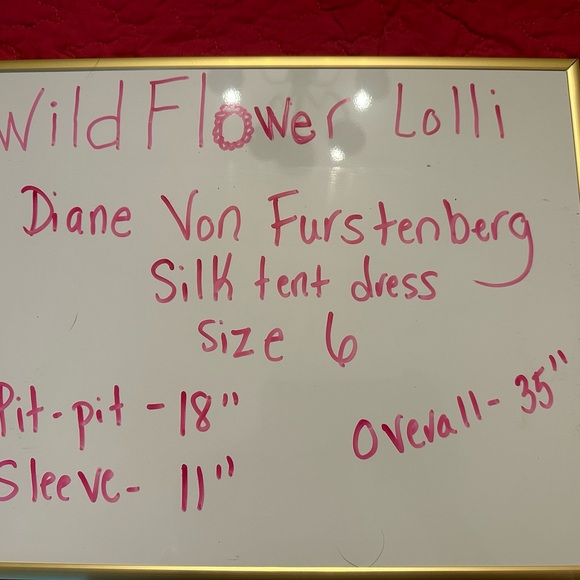 Wild Flower Lolli
Diane Von Furstenberg
Silk tent dress
Size 6
Pit-pit - 18"
Overall - 35"
Sleeve - 11"